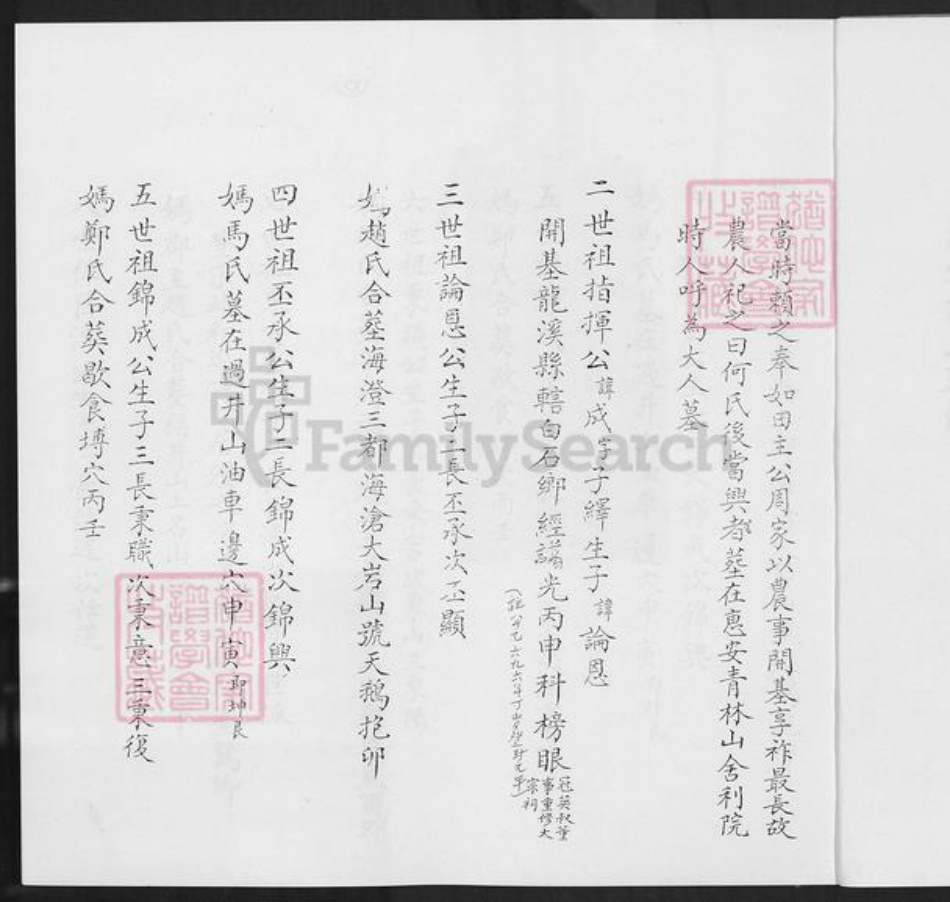 當時賴之奉如田主公周家以農事開基享祚最長故
農人祀之曰何氏後當興者墓在惠安青林山舍利院
時人呼為大人墓
二世祖指揮公諱成字子繹生子諱論恩
開基龍溪縣轄白石鄉經謁光丙申科榜眼冠英叔董事重修大宗祠
三世祖論恩公生子二長丕承次丕顯
媽趙氏合塟海澄三都海滄大岩山號天鵝抱卵
四世祖丕承公生子二長錦成次錦興
媽馬氏墓在過井山油車邊穴申寅即坤艮
五世祖錦成公生子三長秉職次秉意三秉復
媽鄭氏合葬歇食埔穴丙壬
FamilySearch